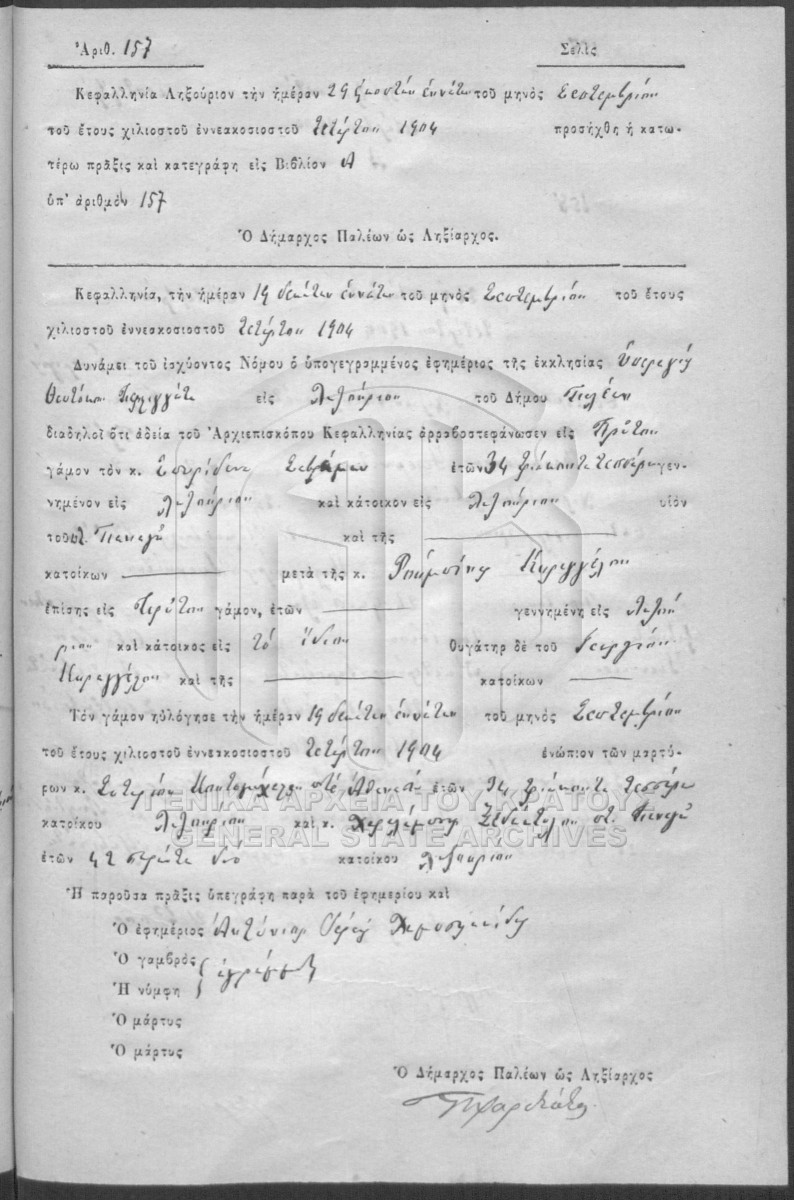 Ἀριθ. 157 Σελὶς
Κεφαλληνία Ληξούριον τὴν ἡμέραν 29 εἰκοστὴν ἐννάτην τοῦ μηνὸς Σεπτεμβρίου
τοῦ ἔτους χιλιοστοῦ ἐννεακοσιοστοῦ τετάρτου 1904 προσήχθη ἡ κατω-
τέρω πρᾶξις καὶ κατεγράφη εἰς Βιβλίον Α
ὑπ' ἀριθμὸν 157
Ὁ Δήμαρχος Παλέων ὡς Ληξίαρχος.
Κεφαλληνία, τὴν ἡμέραν 19 δεκάτην ἐννάτην τοῦ μηνὸς Σεπτεμβρίου τοῦ ἔτους
χιλιοστοῦ ἐννεακοσιοστοῦ τετάρτου 1904
Δυνάμει τοῦ ἰσχύοντος Νόμου ὁ ὑπογεγραμμένος ἐφημέριος τῆς ἐκκλησίας Ὑπεραγίας
Θεοτόκου εἰς Ληξούριον τοῦ Δήμου Παλέων
διαδηλοῖ ὅτι ἀδείᾳ τοῦ Ἀρχιεπισκόπου Κεφαλληνίας ἀρραβοστεφάνωσεν εἰς Πρῶτον
γάμον τὸν κ. Σπυρίδωνα ἐτῶν 34 τριάκοντα τεσσάρων γεν-
νημένον εἰς Ληξούριον καὶ κάτοικον εἰς Ληξούριον υἱὸν
τοῦ Παναγῆ καὶ τῆς
κατοίκων μετὰ τῆς κ. Καραγγέλου
ἐπίσης εἰς Πρῶτον γάμον, ἐτῶν γεννημένη εἰς Ληξού
ριον καὶ κάτοικος εἰς τὸ ἴδιον θυγάτηρ δὲ τοῦ Γεωργίου
Καραγγέλου καὶ τῆς κατοίκων
Τὸν γάμον ηὐλόγησε τὴν ἡμέραν 19 δεκάτην ἐννάτην τοῦ μηνὸς Σεπτεμβρίου
τοῦ ἔτους χιλιοστοῦ ἐννεακοσιοστοῦ τετάρτου 1904 ἐνώπιον τῶν μαρτύ-
ρων κ. Σωτηρίου ἐτῶν 34 τριάκοντα τεσσάρων
ΓΕΝΙΚΑ ΑΡΧΕΙΑ ΤΟΥ ΚΡΑΤΟΥΣ
κατοίκου Ληξουρίου καὶ κ. Παναγῆ
GENERAL STATE ARCHIVES
ἐτῶν 42 δύο κατοίκου Ληξουρίου
Ἡ παροῦσα πρᾶξις ὑπεγράφη παρὰ τοῦ ἐφημερίου καὶ
Ὁ ἐφημέριος Ἀντώνιος
Ὁ γαμβρὸς
Ἡ νύμφη
Ὁ μάρτυς
Ὁ μάρτυς
Ὁ Δήμαρχος Παλέων ὡς Ληξίαρχος